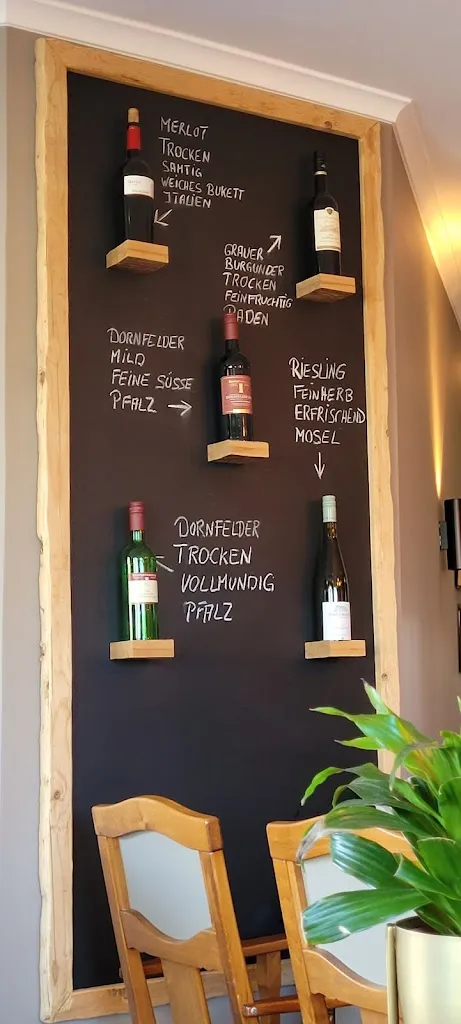 MERLOT
TROCKEN
SAMTIG
WEICHES BUKETT
ITALIEN
GRAUER
BURGUNDER
TROCKEN
FEINFRUCHTIG
BADEN
DORNFELDER
MILD
FEINE SÜSSE
PFALZ
RIESLING
FEINHERB
ERFRISCHEND
MOSEL
DORNFELDER
TROCKEN
VOLLMUNDIG
PFALZ